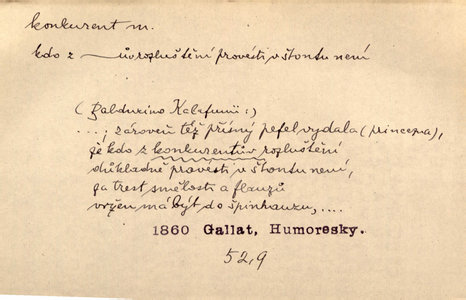 konkurent m.
kdo z —— ů rozluštění provésti v štontu není
(Balduino Kalafunii:)
...; zároveň též přísný pefel vydala (princezna),
že kdo z konkurentův rozluštění
důkladně provesti v štontu není,
za trest smělosti a flauzů
vržen má být do špinhauzu, ....
1860 Gallat, Humoresky.
52,9